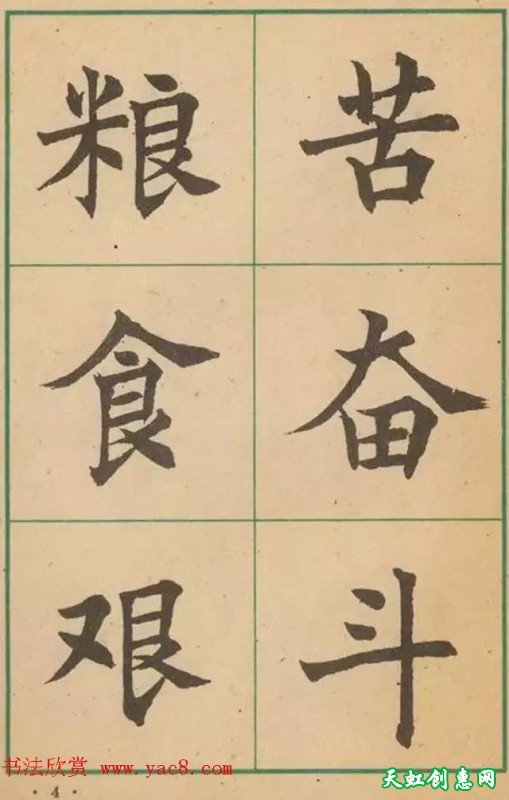 粮食艰
苦奋斗
书法欣赏 www.yac8.com
· 4 ·
天虹创惠网